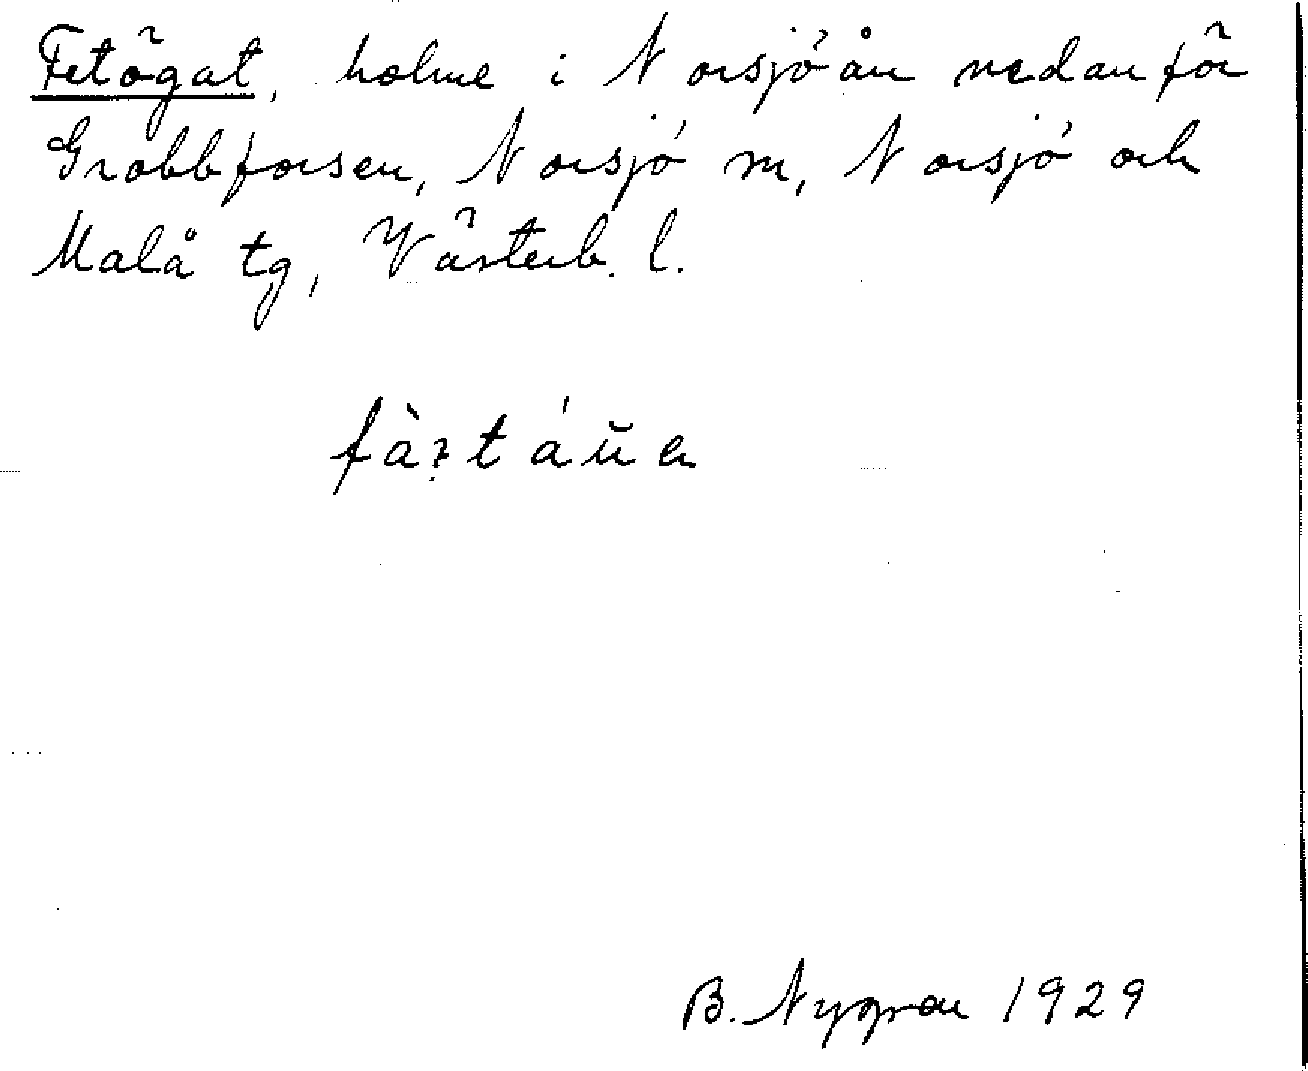 Fetögat, holme i Norsjöån nedanför
Grabbforsen, Norsjö m, Norsjö och
Malå tg, Västerb. l.
B. Nygren 1929